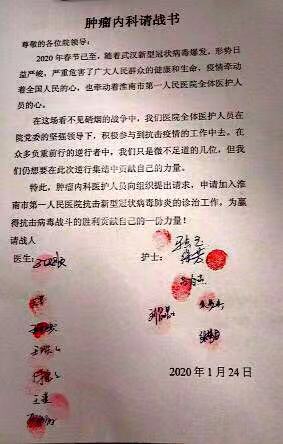 肿瘤内科请战书
尊敬的各位院领导：
2020年春节已至，随着武汉新型冠状病毒爆发，形势日
益严峻，严重危害了广大人民群众的健康和生命，疫情牵动
着全国人民的心，也牵动着淮南市第一人民医院全体医护人
员的心。
在这场看不见硝烟的战争中，我们医院全体医护人员在
院党委的坚强领导下，积极参与到抗击疫情的工作中去。在
众多负重前行的逆行者中，我们只是微不足道的几位，但我
们仍想要在此次逆行集结中贡献自己的力量。
特此，肿瘤内科医护人员向组织提出请求，申请加入淮
南市第一人民医院抗击新型冠状病毒肺炎的诊治工作，为赢
得抗击病毒战斗的胜利贡献自己的一份力量！
请战人
医生： 护士：
2020年1月24日